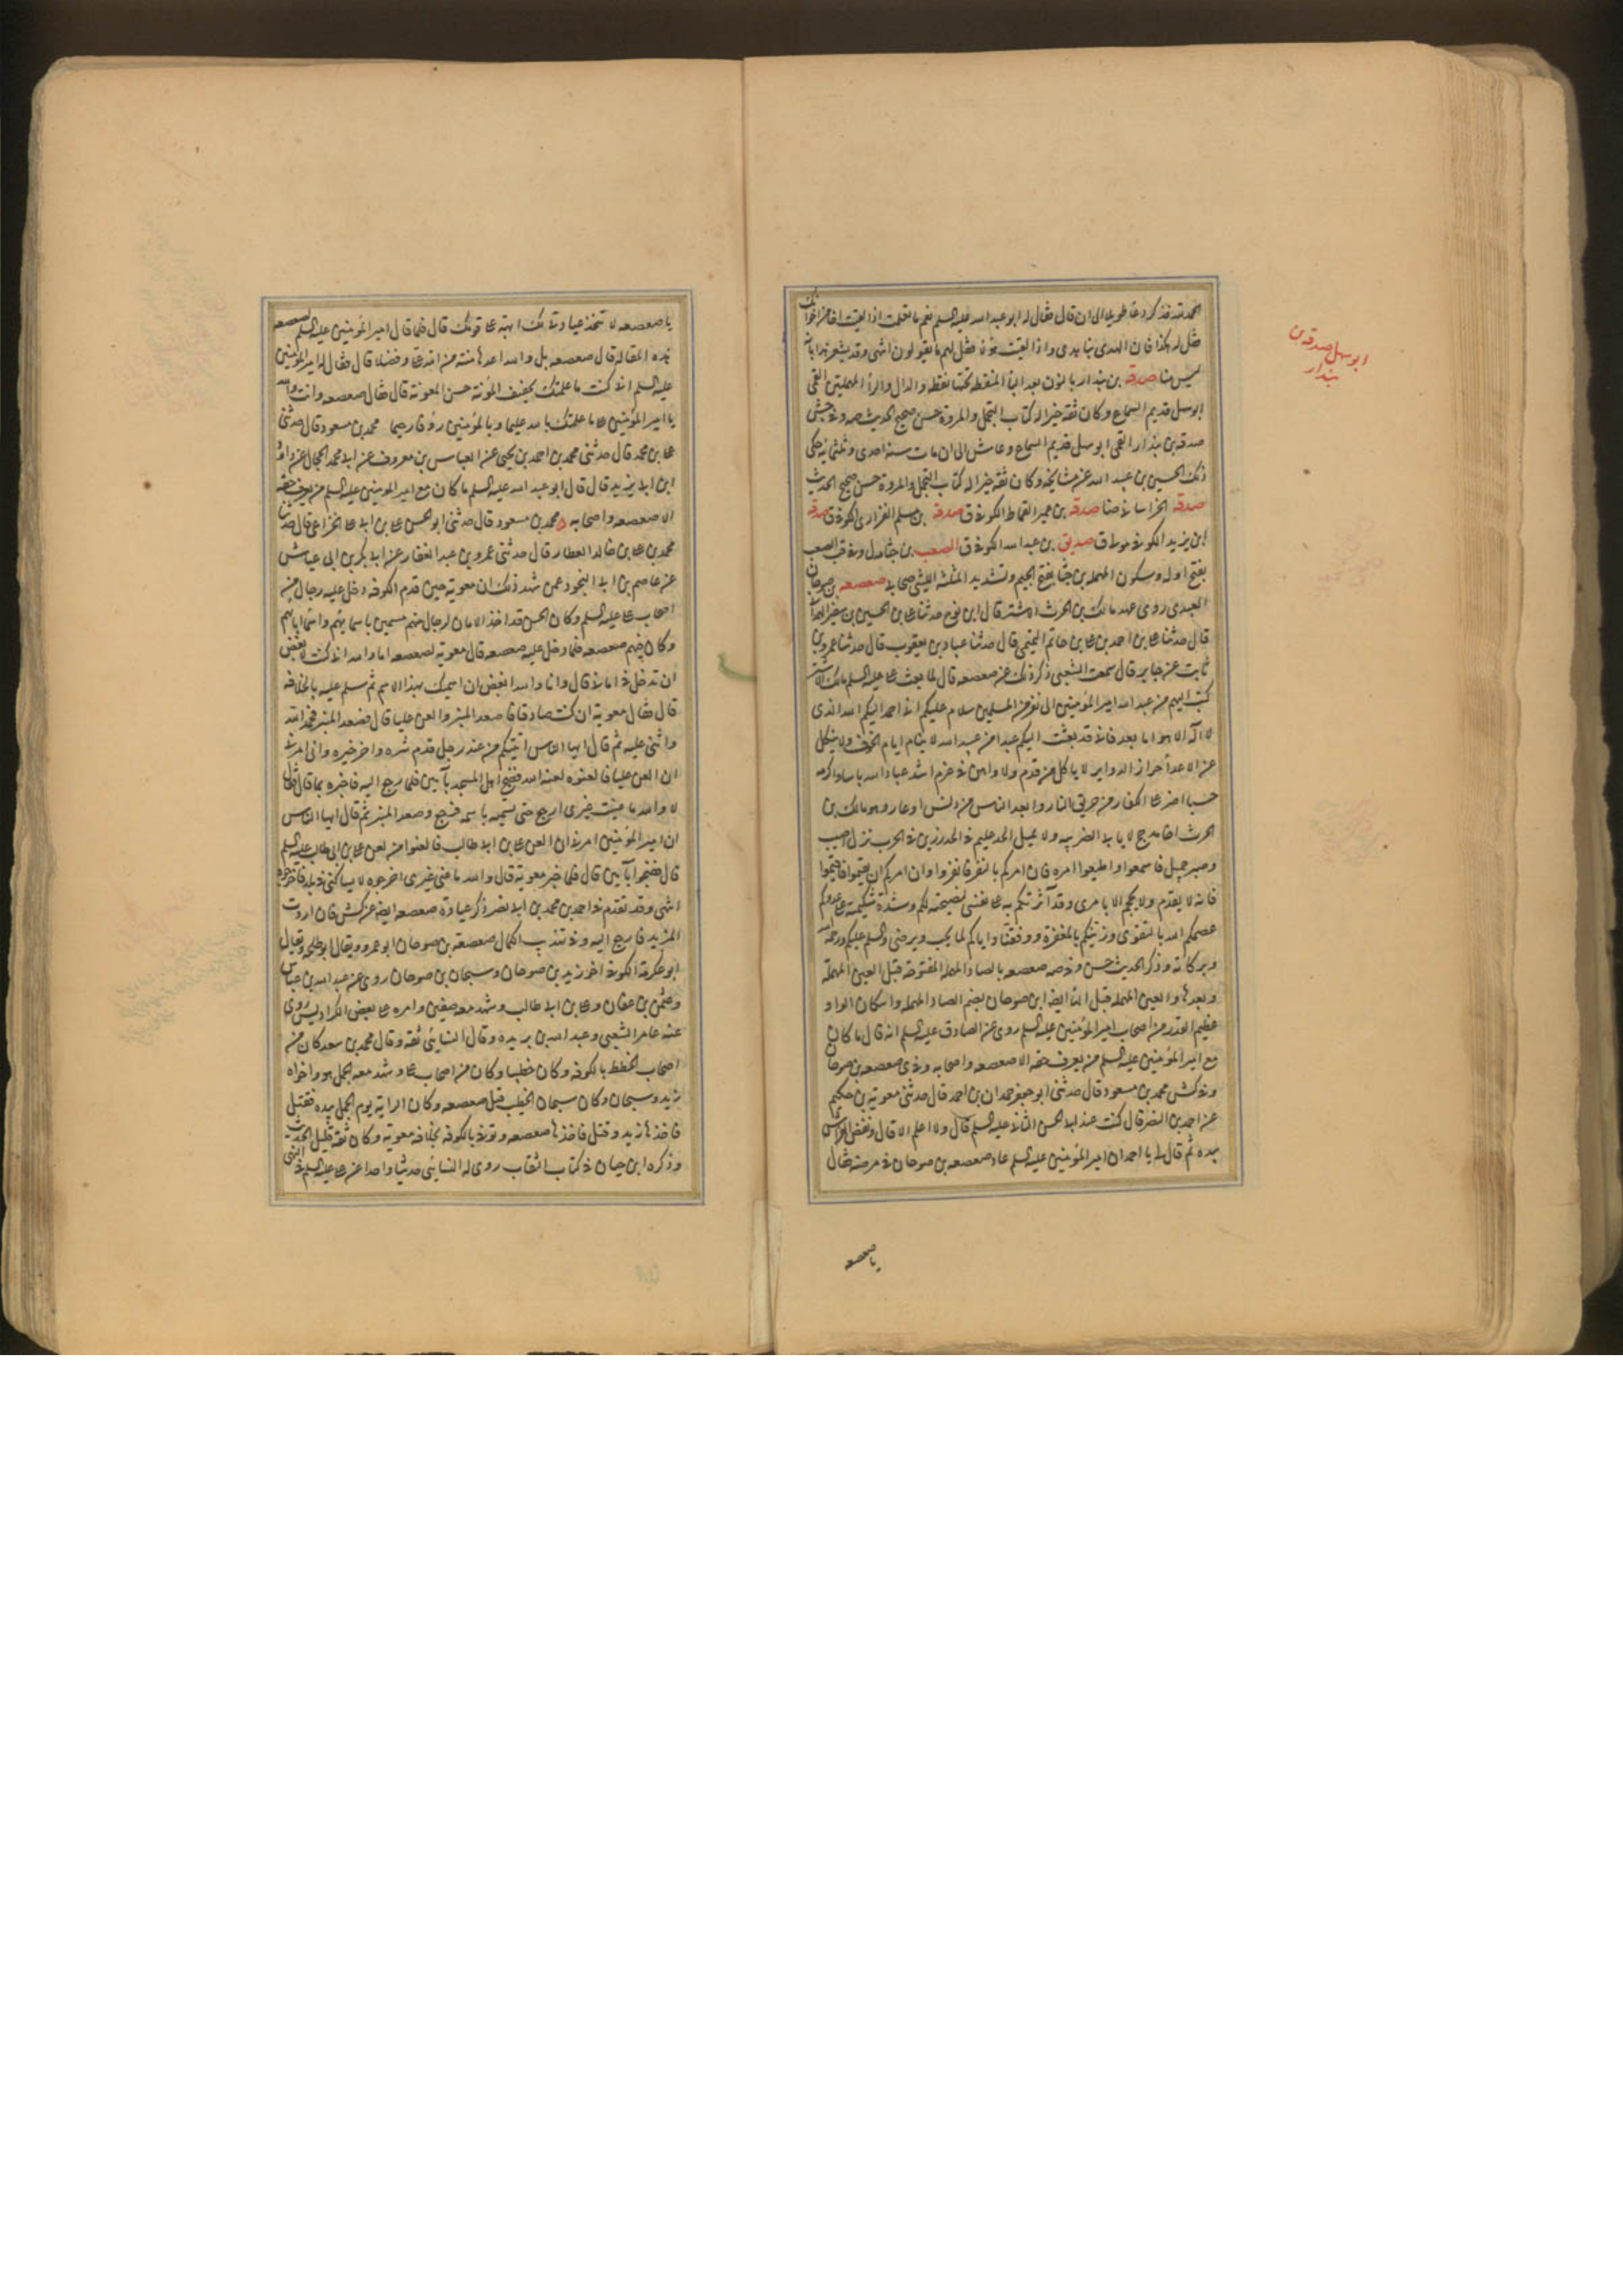 الحمد لله فذكر دعاء طويلا الى ان قال فقال له ابو عبد الله عليه السلم نعم ما تعلمت اذا لقيت اخا من اخوانك
فقل له هكذا فان الهدى بنا يهدى واذا لقيت هؤلاء فقل لهم ما يقولون انتهى وقد يشعر هذا بانه
ليس منا صدقة بن بندار بالنون بعد الباء المنقطة تحتها نقطة والدال والراء المهملتين القمى
ابو سهل قديم السماع وكان ثقة خيرا له كتاب التجمل والمروة حسن صحيح الحديث صه وفى جش
صدقة بن بندار القمى ابو سهل قديم السماع وعاش الى ان مات سنة احدى وثلثمائة حكى
ذلك الحسين بن عبد الله عن مشايخه وكان ثقة خيرا له كتاب التجمل والمروة حسن صحيح الحديث
صدقة الخراسانى ضا صدقة بن عمير القماط الكوفى ق صدقة بن مسلم الفزارى الكوفى ق صدقة
ابن يزيد الكوفى مولا ق صديق بن عبد الله الكوفى ق الصعب بن جثامة ل وفى قب الصعب
بفتح اوله وسكون المهملة بن جثامة بفتح الجيم وتشديد المثلثة الليثى صحابى صعصعة بن صوحان
العبدى روى عهد مالك بن الحرث الاشتر قال ابن نوح حدثنا على بن الحسين بن سفين الهمدانى
قال حدثنا على بن احمد بن على بن حاتم التميمى قال حدثنا عباد بن يعقوب قال حدثنا عمرو بن
ثابت عن جابر قال سمعت الشعبى ذكر ذلك عن صعصعة قال لما بعث على عليه السلم مالك الاشتر
كتب اليهم من عبد الله امير المؤمنين الى نفر من المسلمين سلام عليكم انى احمد اليكم الله الذى
لا اله الا هو اما بعد فانى قد بعثت اليكم عبدا من عبيد الله لا ينام ايام الخوف ولا ينكل
عن الاعداء حراز الدوائر لا ياكل من قدم ولا واهن فى عزم اشد عباد الله باسا واكرمه
حسبا اضر على الكفار من حريق النار وابعد الناس من دنس او عار وهو مالك بن
الحرث اخا مذحج لا نابى الضريبة ولا كليل الحد عليم فى الجد رزين فى الحرب نزل اصيب
وصبر جميل فاسمعوا واطيعوا امره فان امركم بالنفر فانفروا وان امركم ان تقيموا فاقيموا
فانه لا يقدم ولا يحجم الا بامرى وقد آثرتكم به على نفسى لنصيحته لكم وشدة شكيمته على عدوكم
عصمكم الله بالتقوى وزينكم بالمغفرة ووفقنا واياكم لما يحب ويرضى والسلم عليكم ورحمة الله
وبركاته وذكر الحديث جش وفى صه صعصعة بالصاد المهملة المفتوحة قبل العين المهملة
وبعدها والعين المهملة قبل الهاء ايضا ابن صوحان بضم الصاد المهملة واسكان الواو
عظيم القدر من اصحاب امير المؤمنين عليه السلم روى عن الصادق عليه السلم انه قال ما كان
مع امير المؤمنين عليه السلم من يعرف حقه الا صعصعة واصحابه وفى ى صعصعة بن صوحان
وفى كش محمد بن مسعود قال حدثنى ابو جعفر حمدان بن احمد قال حدثنى معوية بن حكيم
عن احمد بن النضر قال كنت عند ابى الحسن الثانى عليه السلم قال ولا اعلم الا قال ونفض الفراش
بيده ثم قال لى يا احمد ان امير المؤمنين عليه السلم عاد صعصعة بن صوحان فى مرضه فقال
يا صعصعة
ابو سهل صدقة بن
بندار
يا صعصعة لا تتخذ عيادتى لك ابهة على قومك قال فلما قال امير المؤمنين عليه السلم لصعصعة
هذه المقالة قال صعصعة بلى والله اعدها منة من الله على وفضلا قال فقال له امير المؤمنين
عليه السلم انى كنت ما علمتك لخفيف المؤنة حسن المعونة قال فقال صعصعة وانت والله
يا امير المؤمنين على ما علمتك بالله عليما وبالمؤمنين رؤفا رحيما محمد بن مسعود قال حدثنى
على بن محمد قال حدثنى محمد بن احمد بن يحيى عن العباس بن معروف عن ابى محمد الحجال عن داود
ابن ابى يزيد قال قال ابو عبد الله عليه السلم ما كان مع امير المؤمنين عليه السلم من يعرف حقه
الا صعصعة واصحابه محمد بن مسعود قال حدثنى ابو الحسن على بن ابى على الخزاعى قال حدثنا
محمد بن على بن خالد العطار قال حدثنى عمرو بن عبد الغفار عن ابى بكر بن ابى عياش
عن عاصم بن ابى النجود عمن شهد ذلك ان معوية حين قدم الكوفة دخل عليه رجال من
اصحاب على عليه السلم وكان الحسن قد اخذ الامان لرجال منهم مسمين باسمائهم واسماء ابائهم
وكان فيهم صعصعة فلما دخل عليه صعصعة قال معوية لصعصعة اما والله انى كنت لابغض
ان تدخل فى امانى قال وانا والله ابغض ان اسميك بهذا الاسم ثم سلم عليه بالخلافة
قال فقال معوية ان كنت صادقا فاصعد المنبر والعن عليا قال فصعد المنبر فحمد الله
واثنى عليه ثم قال ايها الناس اتيتكم من عند رجل قدم شره واخر خيره وانه امرنى
ان العن عليا فالعنوه لعنه الله فضج اهل المسجد بآمين فلما رجع اليه فاخبره بما قال قال
لا والله ما عنيت غيرى ارجع حتى تسميه باسمه فرجع وصعد المنبر ثم قال ايها الناس
ان امير المؤمنين امرنى ان العن على بن ابى طالب فالعنوا من لعن على بن ابى طالب عليه السلم
قال فضجوا بآمين قال فلما خبر معوية قال والله ما عنى غيرى اخرجوه لا يساكننى فى بلد فاخرجوه
انتهى وقد تقدم فى احمد بن محمد بن ابى نصر ذكر عيادة صعصعة ايضا عن كش فان اردت
المزيد فارجع اليه وفى تهذيب الكمال صعصعة بن صوحان ابو عمرو ويقال ابو طلحة ويقال
ابو عكرمة الكوفى اخو زيد بن صوحان وسيحان بن صوحان روى عن عبد الله بن عباس
وعثمن بن عفان وعلى بن ابى طالب وشهد معه صفين وامره على بعض الكراديس روى
عنه عامر الشعبى وعبد الله بن بريدة وقال النسائى ثقة وقال محمد بن سعد كان من
اصحاب الخطط بالكوفة وكان خطيبا وكان من اصحاب على وشهد معه الجمل هو واخواه
زيد وسيحان وكان سيحان الخطيب قبل صعصعة وكان الراية يوم الجمل بيده فقتل
فاخذها زيد وقتل فاخذها صعصعة وتوفى بالكوفة بخلافة معوية وكان ثقة قليل الحديث
وذكره ابن حبان فى كتاب الثقاب روى له النسائى حديثا واحدا عن على عليه السلم فى النهى